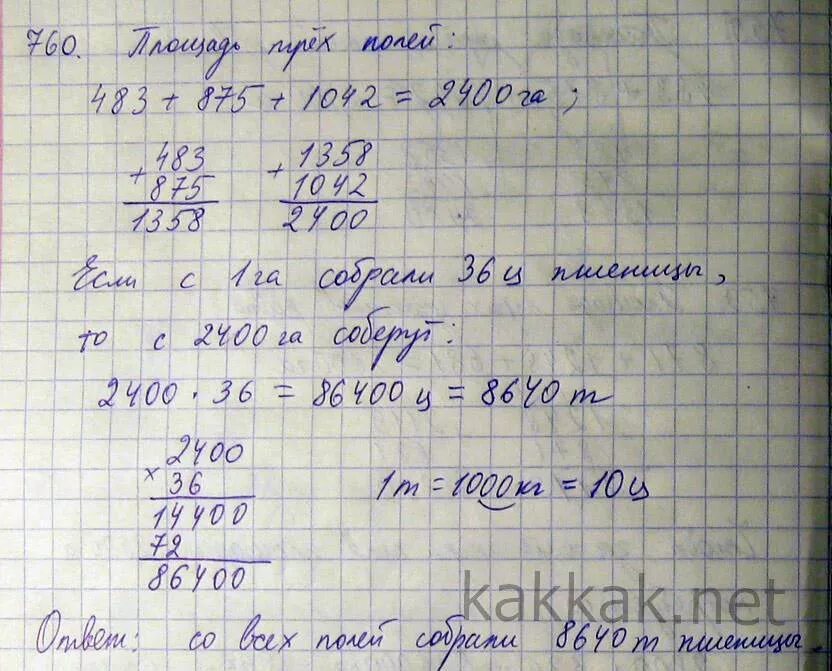 760. Площадь трёх полей:
483 + 875 + 1042 = 2400 га;
+ 483
875
1358
+ 1358
1042
2400
Если с 1 га собрали 36 ц пшеницы,
то с 2400 га соберут:
2400 · 36 = 86400 ц = 8640 т
2400
× 36
14400
72
86400
1 т = 1000 кг = 10 ц
kakkak.net
Ответ: со всех полей собрали 8640 т пшеницы.